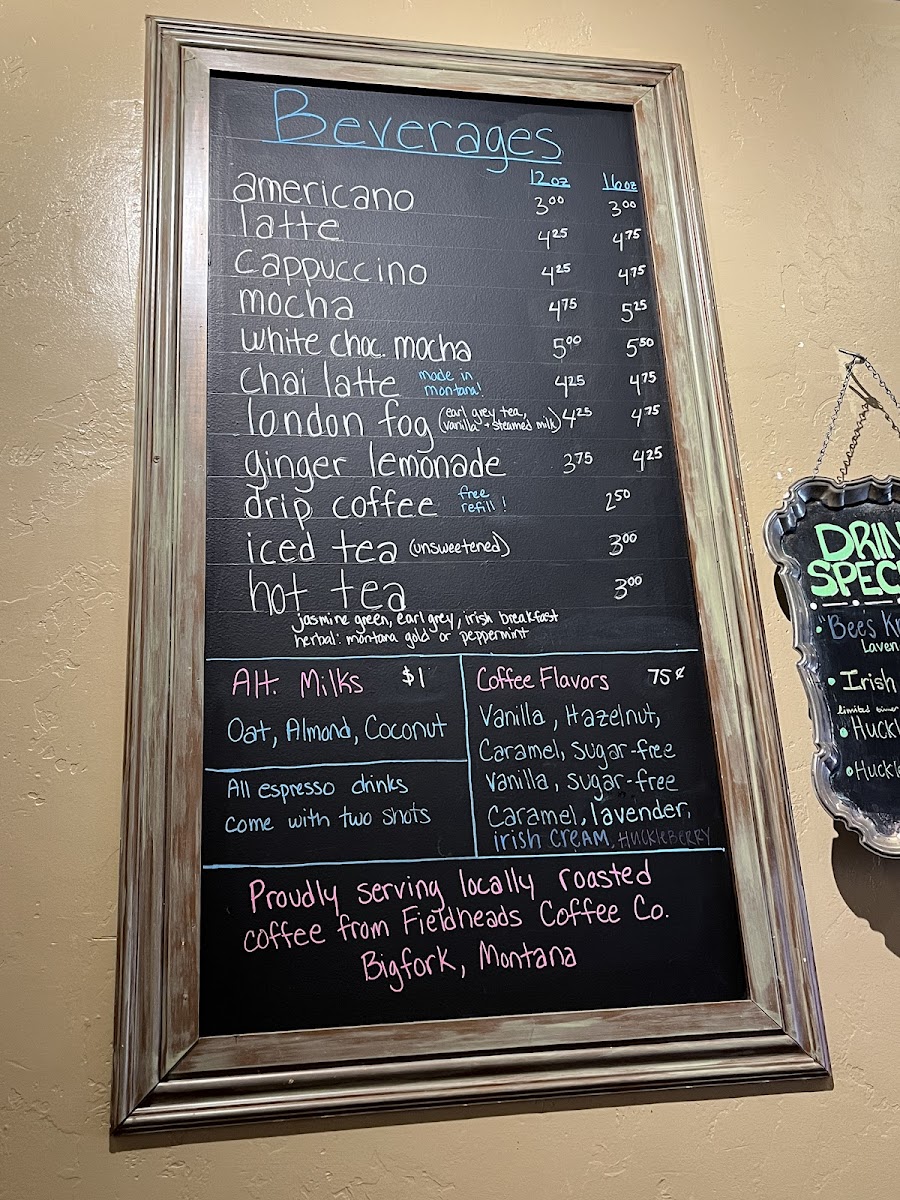 Beverages
12oz 16oz
americano 3.00 3.00
latte 4.25 4.75
cappuccino 4.25 4.75
mocha 4.75 5.25
white choc. mocha 5.00 5.50
chai latte made in montana! 4.25 4.75
london fog (earl grey tea, vanilla + steamed milk) 4.25 4.75
ginger lemonade 3.75 4.25
drip coffee free refill! 2.50
iced tea (unsweetened) 3.00
hot tea 3.00
jasmine green, earl grey, irish breakfast
herbal: montana gold or peppermint
Alt. Milks $1
Oat, Almond, Coconut
All espresso drinks
come with two shots
Coffee Flavors 75¢
Vanilla, Hazelnut,
Caramel, sugar-free
Vanilla, sugar-free
Caramel, lavender,
irish CREAM, HUCKLEBERRY
Proudly serving locally roasted
coffee from Fieldheads Coffee Co.
Bigfork, Montana
DRIN
SPEC
"Bees Kn
Laven
Irish
limited time
Huckl
Huckle